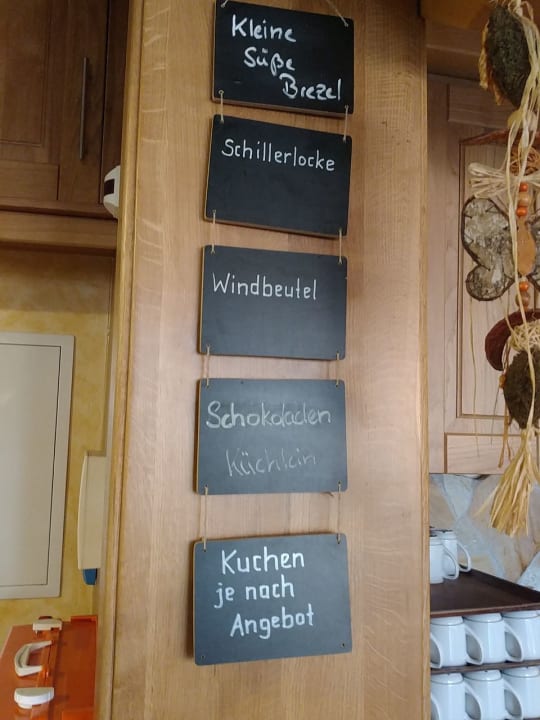 Kleine
Süße
Brezel
Schillerlocke
Windbeutel
Schokoladen
Küchlein
Kuchen
je nach
Angebot